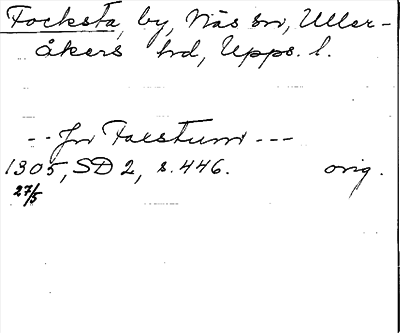 Focksta, by, Näs sn, Uller-
åkers hd, Upps. l.
-- Jn Faxstum ---
1305, SD 2, s. 446. orig.
27/5